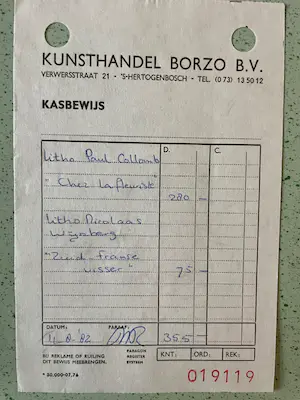 KUNSTHANDEL BORZO B.V.
VERWERSSTRAAT 21 - 'S-HERTOGENBOSCH - TEL. (073) 135012
KASBEWIJS
D. C.
Litho Paul Collomb
"Chez La fleuriste" 280 —
Litho Nicolaas
Wijnberg
"Zuid-Franse
visser" 75 —
DATUM: PARAAF: 355 —
82
BIJ REKLAME OF RUILING
DIT BEWIJS MEEBRENGEN.
PARAGON
REGISTER
SYSTEEM
KNT: ORD: REK:
* 30.000-07.76
019119